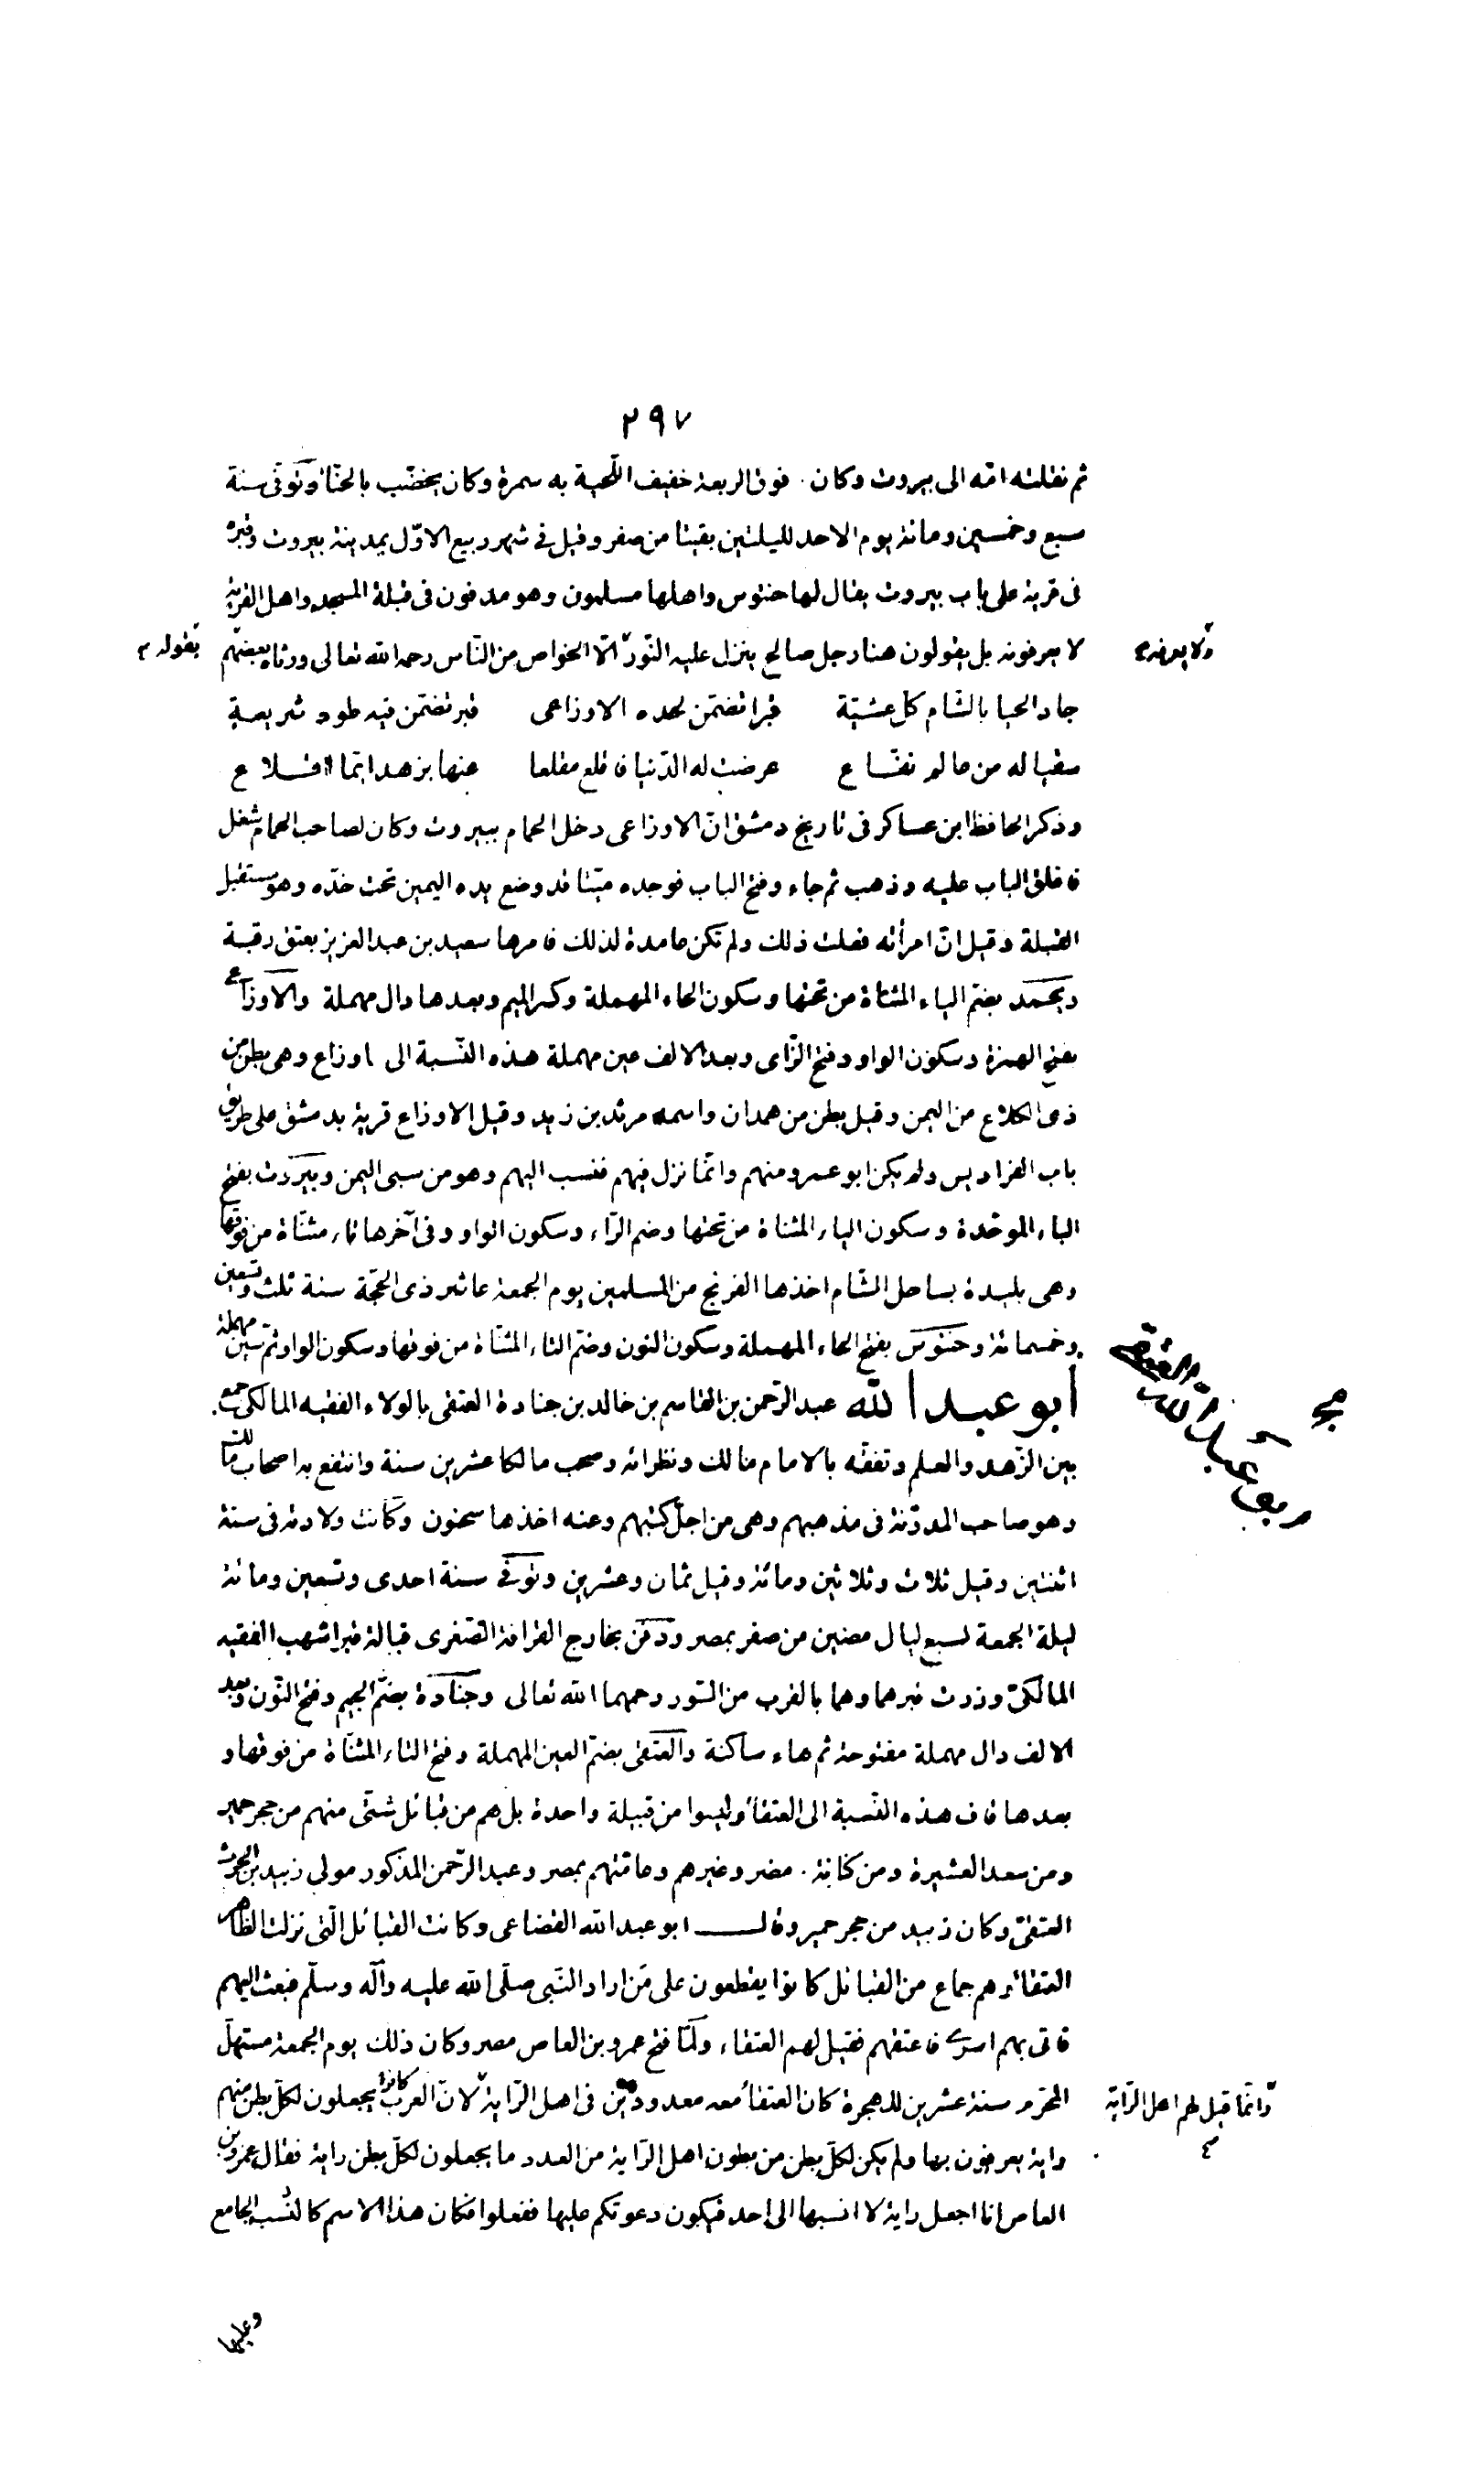 ٢٩٧
ثم نقلته امّه الى بيروت وكان فوق الربعة خفيف اللّحية به سمرة وكان يخضّب بالحنّاء وتوفّى سنة
سبع وخمسين ومائة يوم الاحد لليلتين بقيتا من صفر وقيل فى شهر ربيع الاوّل بمدينة بيروت وقبره
فى قرية على باب بيروت يقال لها حنتوس واهلها مسلمون وهو مدفون فى قبلة المسجد واهل القرية
لا يعرفونه بل يقولون هنا رجل صالح ينزل عليه النّور الّا الخواص من النّاس رحمه الله تعالى ورثاه بعضهم
ولا يعرفه
بقوله
جاد الحيا بالشّام كلّ عشيّة قبرا تضمّن لحده الاوزاعى قبر تضمّن فيه طود شريعة
سقيا له من عالم نفّاع عرضت له الدّنيا فاقلع مقلعا عنها بزهد ايّما اقلاع
وذكر الحافظ ابن عساكر فى تاريخ دمشق انّ الاوزاعى دخل الحمام ببيروت وكان لصاحب الحمام شغل
فاغلق الباب عليه وذهب ثم جاء وفتح الباب فوجده ميّتا قد وضع يده اليمين تحت خدّه وهو مستقبل
القبلة وقيل انّ امرأته فعلت ذلك ولم تكن عامدة لذلك فامرها سعيد بن عبد العزيز بعتق رقبة
ويحمد بضمّ الياء المثناة من تحتها وسكون الحاء المهملة وكسر الميم وبعدها دال مهملة والاوزاعى
بفتح الهمزة وسكون الواو وفتح الزّاى وبعد الالف عين مهملة هذه النّسبة الى اوزاع وهى بطن من
ذى الكلاع من اليمن وقيل بطن من همدان واسمه مرثد بن زيد وقيل الاوزاع قرية بدمشق على طريق
باب الفراديس ولم يكن ابو عمرو منهم وانّما نزل فيهم فنسب اليهم وهو من سبى اليمن وبيروت بفتح
الباء الموحّدة وسكون الياء المثناة من تحتها وضم الرّاء وسكون الواو وفى آخرها تاء مثنّاة من فوقها
وهى بليدة بساحل الشّام اخذها الفرنج من المسلمين يوم الجمعة عاشر ذى الحجّة سنة ثلث وتسعين
وخمسمائة وحنتوس بفتح الحاء المهملة وسكون النون وضمّ التاء المثنّاة من فوقها وسكون الواو ثمّ سين مهملة
أبو عبد الله عبد الرّحمن بن القاسم بن خالد بن جنادة العتقى بالولاء الفقيه المالكى جمع
بين الزّهد والعلم وتفقّه بالامام مالك ونظرائه وصحب مالكا عشرين سنة وانتفع به اصحاب مالك
وهو صاحب المدوّنة فى مذهبهم وهى من اجلّ كتبهم وعنه اخذها سحنون وكانت ولادته فى سنة
اثنتين وقيل ثلاث وثلاثين ومائة وقيل ثمان وعشرين وتوفّى سنة احدى وتسعين ومائة
ليلة الجمعة لسبع ليال مضين من صفر بمصر ودفن بخارج القرافة الصّغرى قبالة قبر اشهب الفقيه
المالكىّ وزرت قبرهما وهما بالقرب من السّور رحمهما الله تعالى وجنادة بضمّ الجيم وفتح النّون وبعد
الالف دال مهملة مفتوحة ثم هاء ساكنة والعتقى بضمّ العين المهملة وفتح التاء المثنّاة من فوقها و
بعدها قاف هذه النّسبة الى العتقاء وليسوا من قبيلة واحدة بل هم من قبائل شتّى منهم من حجر حمير
ومن سعد العشيرة ومن كنانة مضر وغيرهم وعامّتهم بمصر وعبد الرّحمن المذكور مولى زبيد بن الحرث
العتقىّ وكان زبيد من حجر حمير وقال ابو عبد الله القضاعى وكانت القبائل الّتى نزلت الظاهر
العتقاء وهم جماع من القبائل كانوا يقطعون على من اراد النّبى صلّى الله عليه وآله وسلّم فبعث اليهم
فاتى بهم اسرى فاعتقهم فقيل لهم العتقاء ولمّا فتح عمرو بن العاص مصر وكان ذلك يوم الجمعة مستهلّ
المحرّم سنة عشرين للهجرة كان العتقاء معه معدودين فى اهل الرّاية لانّ العرب كانوا يجعلون لكلّ بطن منهم
وانّما قيل لهم اهل الرّاية
راية يعرفون بها ولم يكن لكلّ بطن من بطون اهل الرّاية من العدد ما يجعلون لكلّ بطن راية فقال عمرو بن
العاص انا اجعل راية لا انسبها الى احد فيكون دعوتكم عليها ففعلوا فكان هذا الاسم كالنّسب الجامع
وعليها